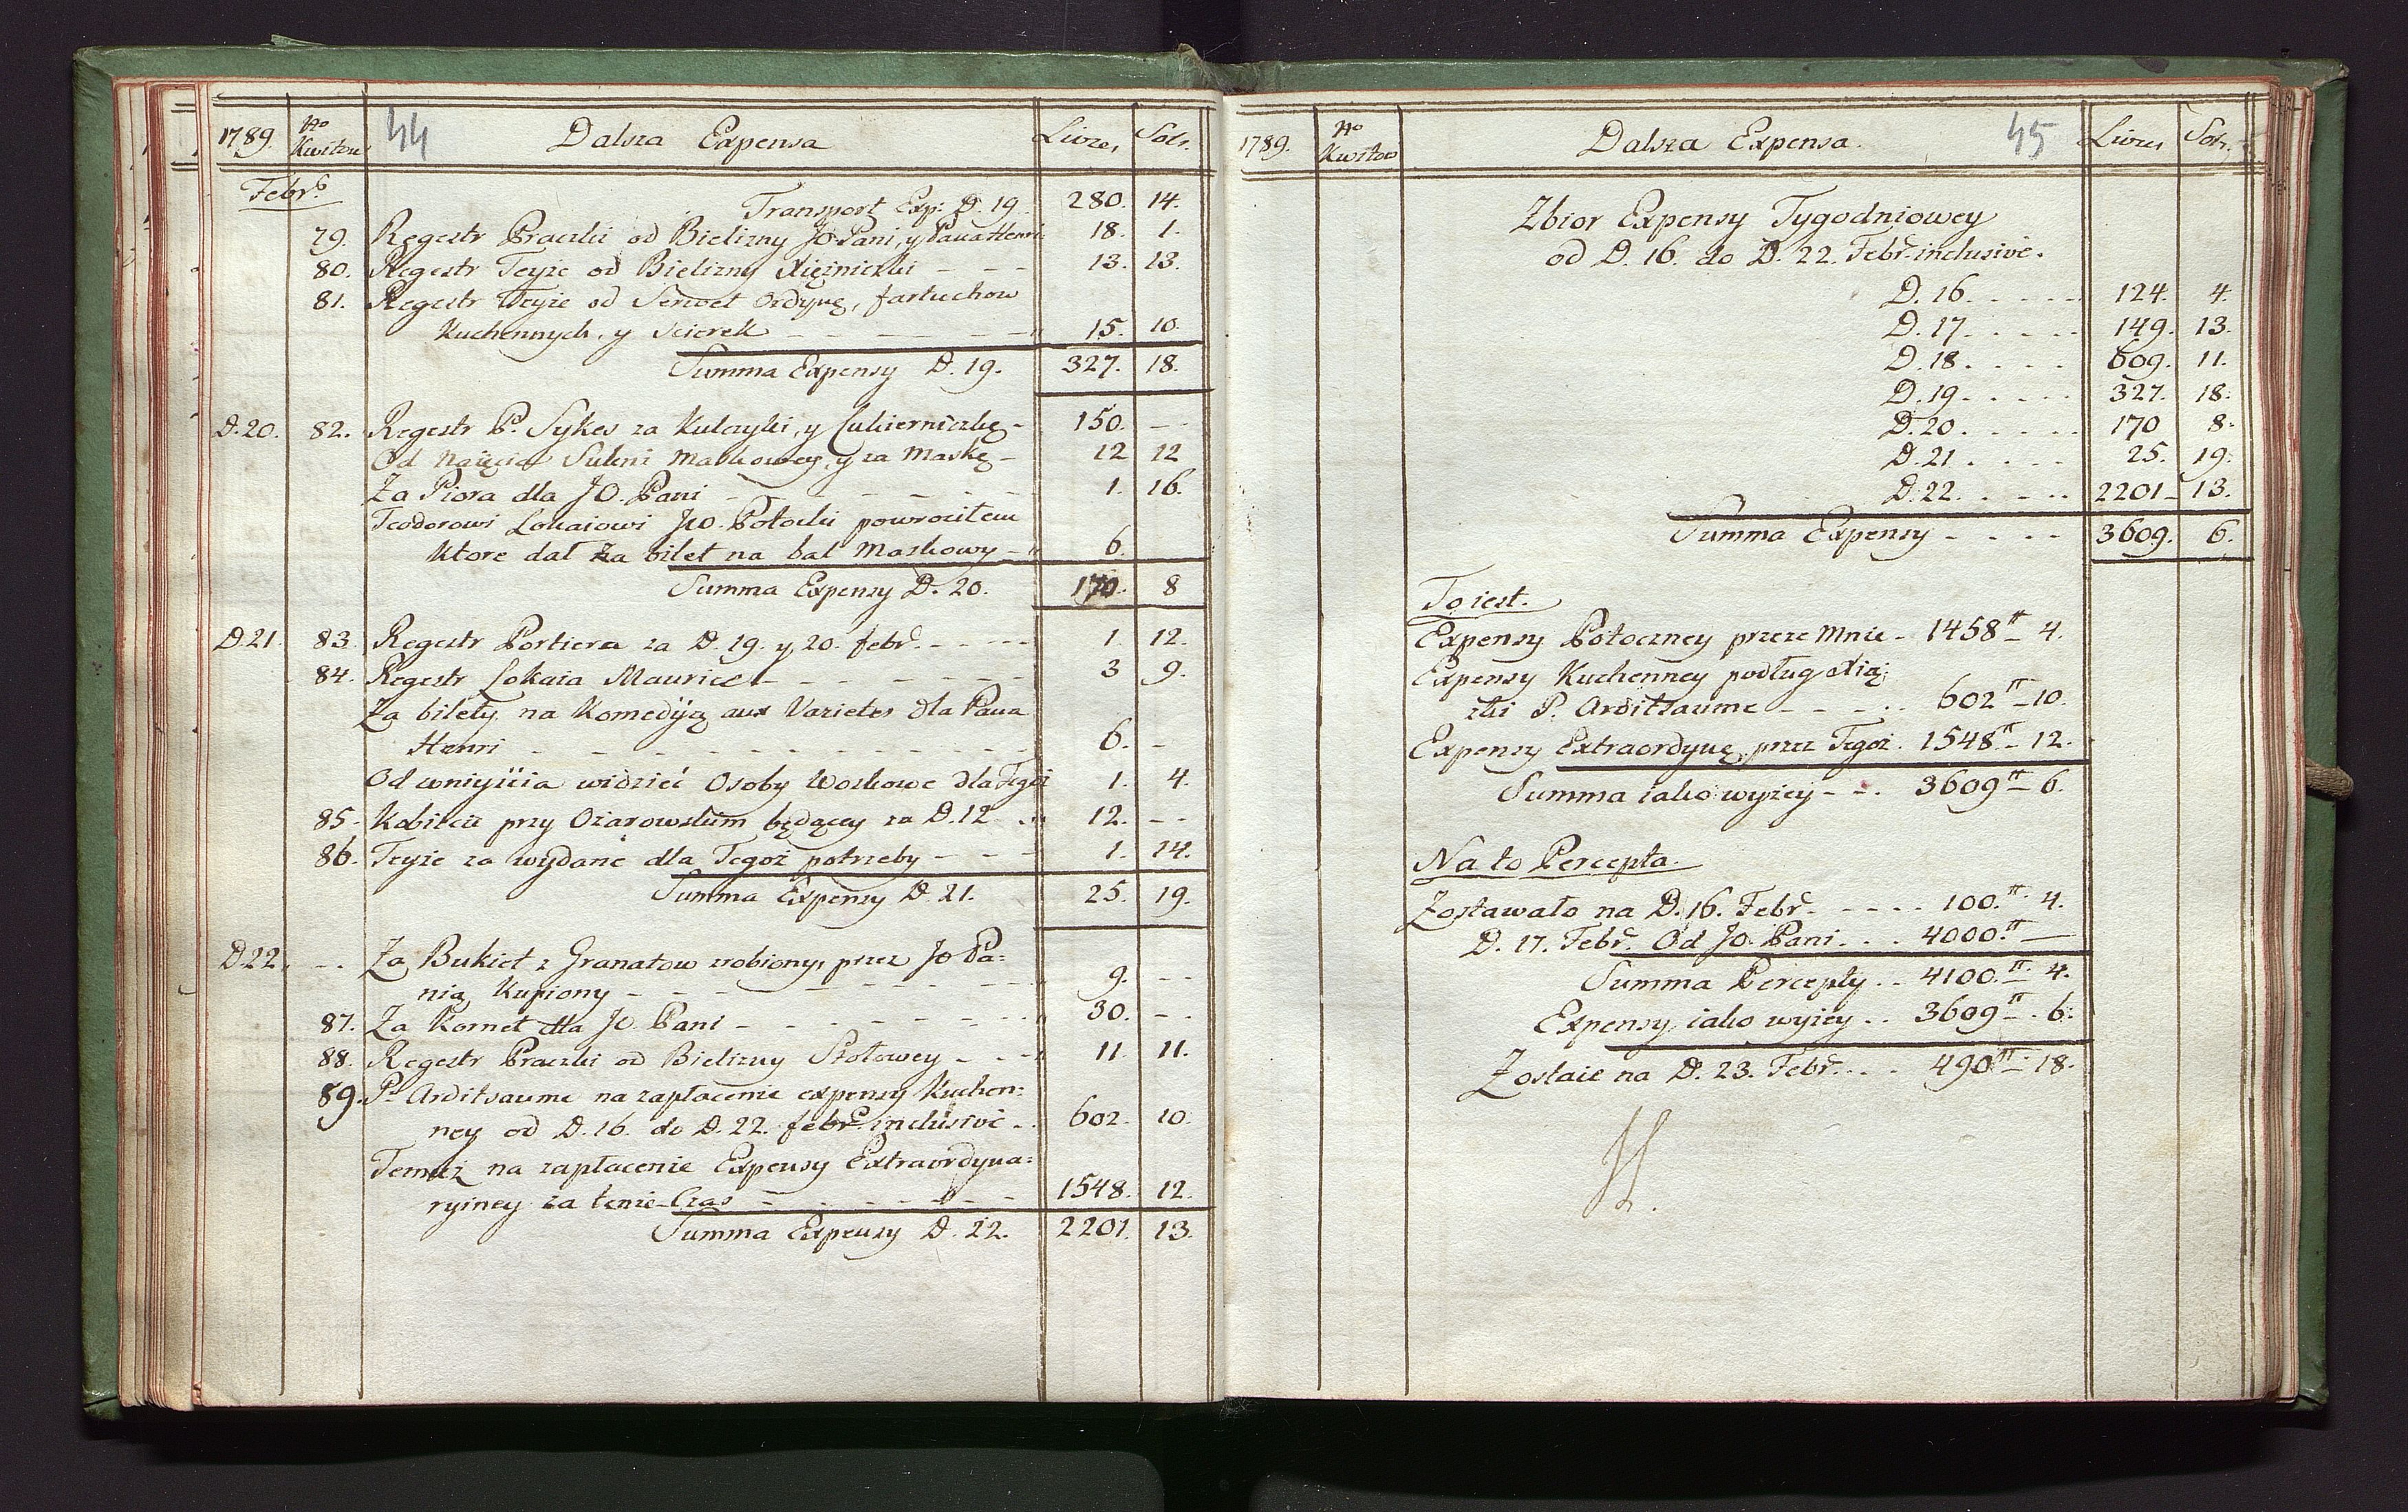 1789. No Kwitow 44 Dalsza Expensa Livres Sols.
Febr.
Transport Exp: D. 19. 280. 14.
79. Regestr Praczki od Bielizny JO Pani, y Pana Henri 18. 1.
80. Regestr Teyże od Bielizny Xiężniczki - - - 13. 13.
81. Regestr Teyże od Serwet Ordynę, fartuchow
Kuchennych, y Scierek 15. 10.
Summa Expensy D. 19. 327. 18.
D. 20. 82. Regestr P. Sykes za Kulczyki, y Cukierniczkę - 150. - -
Od Naięcia Sukni Maskowey, y za Maskę - 12 12
Za Piora dla JO. Pani 1. 16.
Teodorowi Lokaiowi JO. Potocki powrociłem
Ktore dał Za bilet na bal Maskowy - 6.
Summa Expensy D. 20. 170. 8
D. 21. 83. Regestr Portiera za D. 19. y 20. febr. - - - 1. 12.
84. Regestr Lokaia Maurice - - - 3 9.
Za bilety na Komedyą aux Varietes dla Pana
Henri - - - 6. -
Od wniyścia widzieć Osoby Woskowe dla Tegoż 1. 4.
85. Kobiecie przy Ożarowskim będącey za D. 12. 12. - -
86. Teyże za wydane dla Tegoż potrzeby - - - 1. 14.
Summa Expensy D. 21. 25. 19.
D. 22. - - Za Bukiet z Granatow zrobiony, przez JO Pa=
nią Kupiony - - - 9. - -
87. Za Kornet dla JO. Pani - - - 30. - -
88. Regestr Praczki od Bielizny Stołowey - - - 11. 11.
89. P. Arditsaume na zapłacenie expensy Kuchen=
ney od D. 16. do D. 22. febr. inclusivè - 602. 10.
Temuż na zapłacenie Expensy Extraordyna=
ryiney za tenże Czas - - - 1548. 12.
Summa Expensy D. 22. 2201. 13.
1789. No Kwitow Dalsza Expensa. 45 Livres Sols.
Zbior Expensy Tygodniowey
od D. 16. do D. 22. Febr. inclusivè.
D. 16. - - - 124. 4.
D. 17. - - - 149. 13.
D. 18. - - - 609. 11.
D. 19. - - - 327. 18.
D. 20. - - - 170 8.
D. 21. - - - 25. 19.
D. 22. - - - 2201 - 13.
Summa Expensy - - - - 3609. 6.
To iest.
Expensy Potoczney przeze Mnie - 1458 tt - 4.
Expensy Kuchenney podług Xią:
żki P. Arditsaume - - - 602 tt - 10.
Expensy Extraordynę. przez Tegoż. 1548 tt - 12.
Summa iako wyżey - - . 3609 tt - 6.
Na to Percepta.
Zostawało na D. 16. Febr. - - - - 100. tt - 4.
D. 17. Febr. Od JO. Pani. . . 4000. tt —
Summa Percepty . . 4100. tt - 4.
Expensy iako wyżey . . 3609 tt - 6.
Zostaie na D. 23. Febr. . . 490 tt - 18.